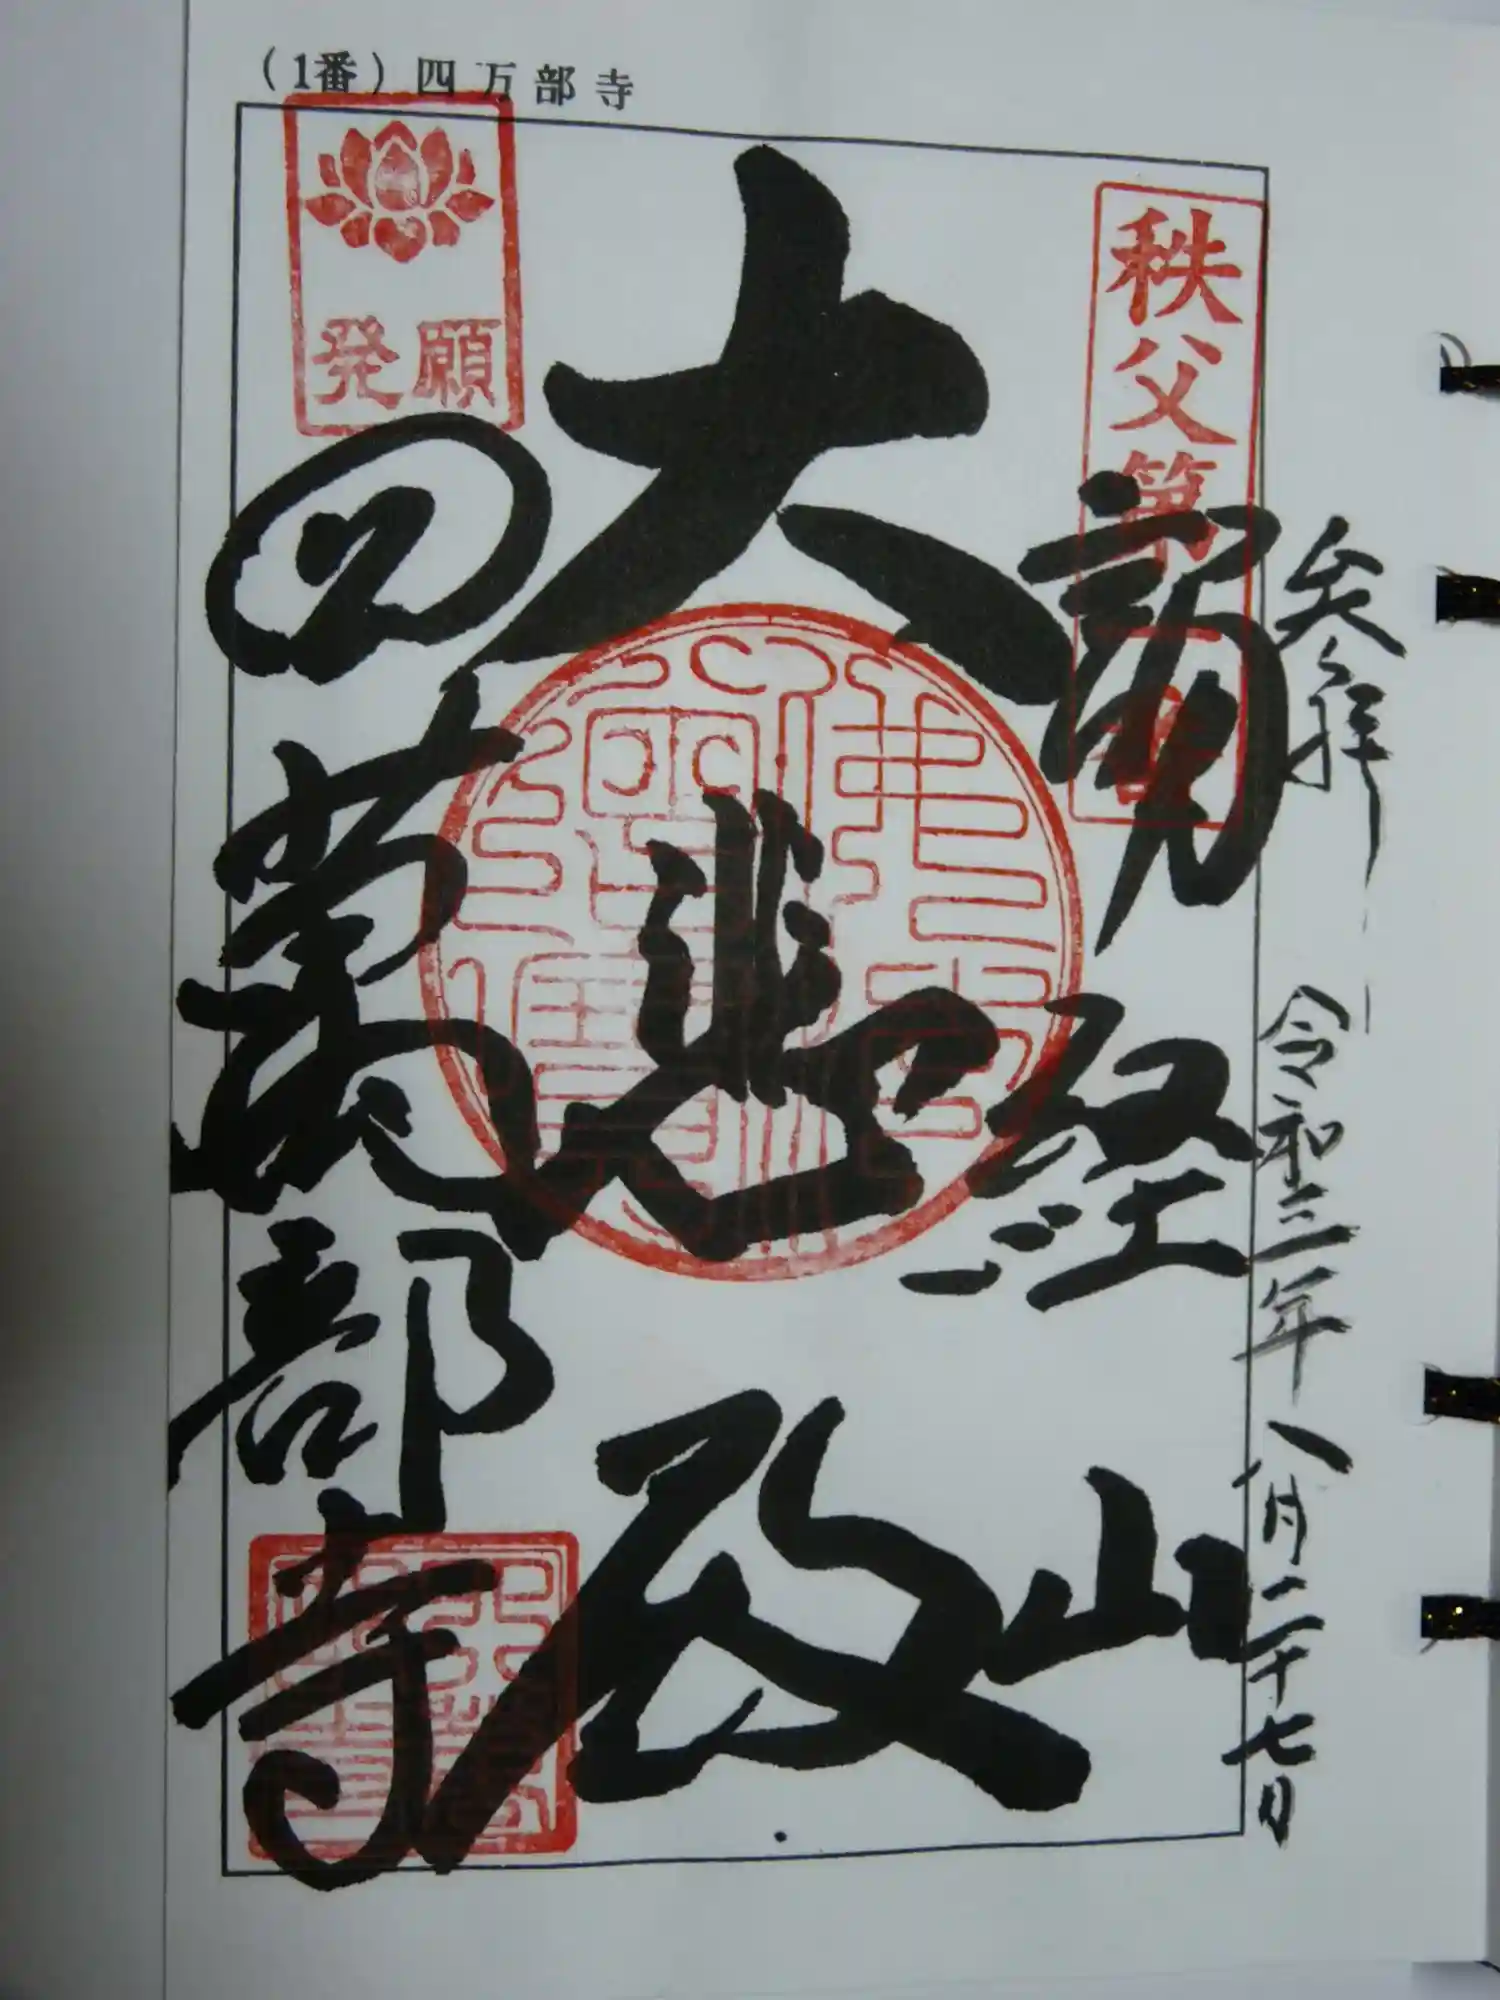 （1番）四万部寺
参拝 令和三年八月二十七日
秩父第一番
誦経山
大悲殿
発願
四萬部寺